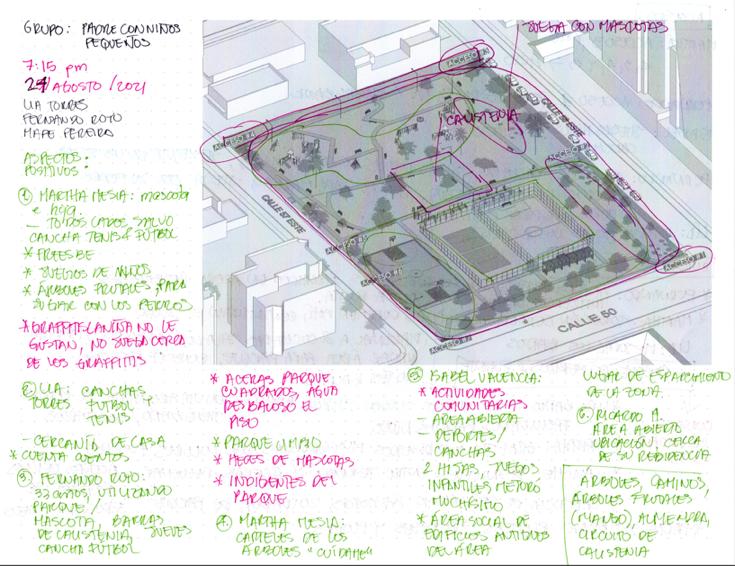 GRUPO: PADRE CON NIÑOS
PEQUEÑOS
7:15 pm
24/AGOSTO/2021
LIA TORRES
FERNANDO ROTO
MAPE PEREIRO
ASPECTOS:
POSITIVOS:
① MARTHA MESIA: mascota
e hija.
– TODOS LADOS SALVO
CANCHA TENIS & FUTBOL
* FREESBE
* JUEGOS DE NIÑOS
* ÁRBOLES FRUTALES PARA
JUGAR CON LOS PERROS
* GRAFFITIS CANTINA NO LE
GUSTAN, NO JUEGA CERCA
DE LOS GRAFFITIS
② LIA: CANCHAS
TORRES FUTBOL Y
TENIS
– CERCANÍA DE CASA
* CUENTA CUENTOS
③ FERNANDO ROTO:
33 años, UTILIZANDO
PARQUE /
MASCOTA, BARRAS
DE CALISTENIA, JUEVES
CANCHA FUTBOL
JUEGA CON MASCOTAS
CALISTENIA
CALLE 57 ESTE
CALLE 50
* ACERAS PARQUE
CUADRADOS, AGUA
DESBALOSO EL
PISO
* PARQUE LIMPIO
* HECES DE MASCOTAS
* INDIGENTES DEL
PARQUE
④ MARTHA MESIA:
CARTELES DE LOS
ÁRBOLES "CUÍDAME"
⑤ ISABEL VALENCIA:
* ACTIVIDADES
COMUNITARIAS
– AREA ABIERTA
– DEPORTES/
CANCHAS
2 HIJAS, JUEGOS
INFANTILES MEJORÓ
MUCHISIMO
* ÁREA SOCIAL DE
EDIFICIOS ANTIGUOS
DEL ÁREA
LUGAR DE ESPARCIMIENTO
DE LA ZONA.
⑥ RICARDO M.
AREA ABIERTO
UBICACIÓN, CERCA
DE SU RESIDENCIA
ÁRBOLES, CAMINOS,
ÁRBOLES FRUTALES
(MANGO), ALMENDRA,
CIRCUITO DE
CALISTENIA